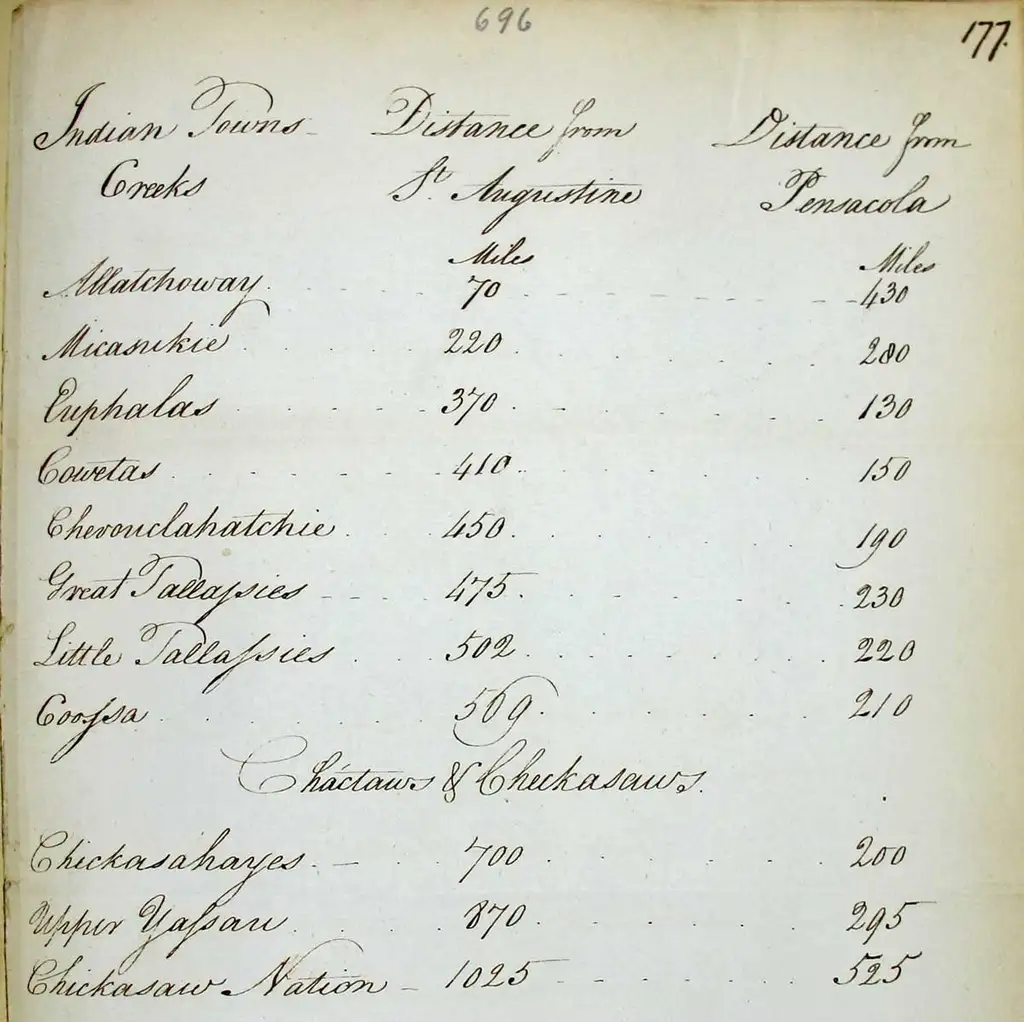 696
177.
Indian Towns Distance from Distance from
Creeks St. Augustine Pensacola
Miles Miles
Allatchoway 70 430
Micasukie 220 280
Euphalas 370 130
Cowetas 410 150
Chevouclahatchie 450 190
Great Tallassies 475 230
Little Tallassies 502 220
Coossa 569 210
Cháctaws & Checkasaws.
Chickasahayes 700 200
Upper Yassau 870 295
Chickasaw Nation 1025 525